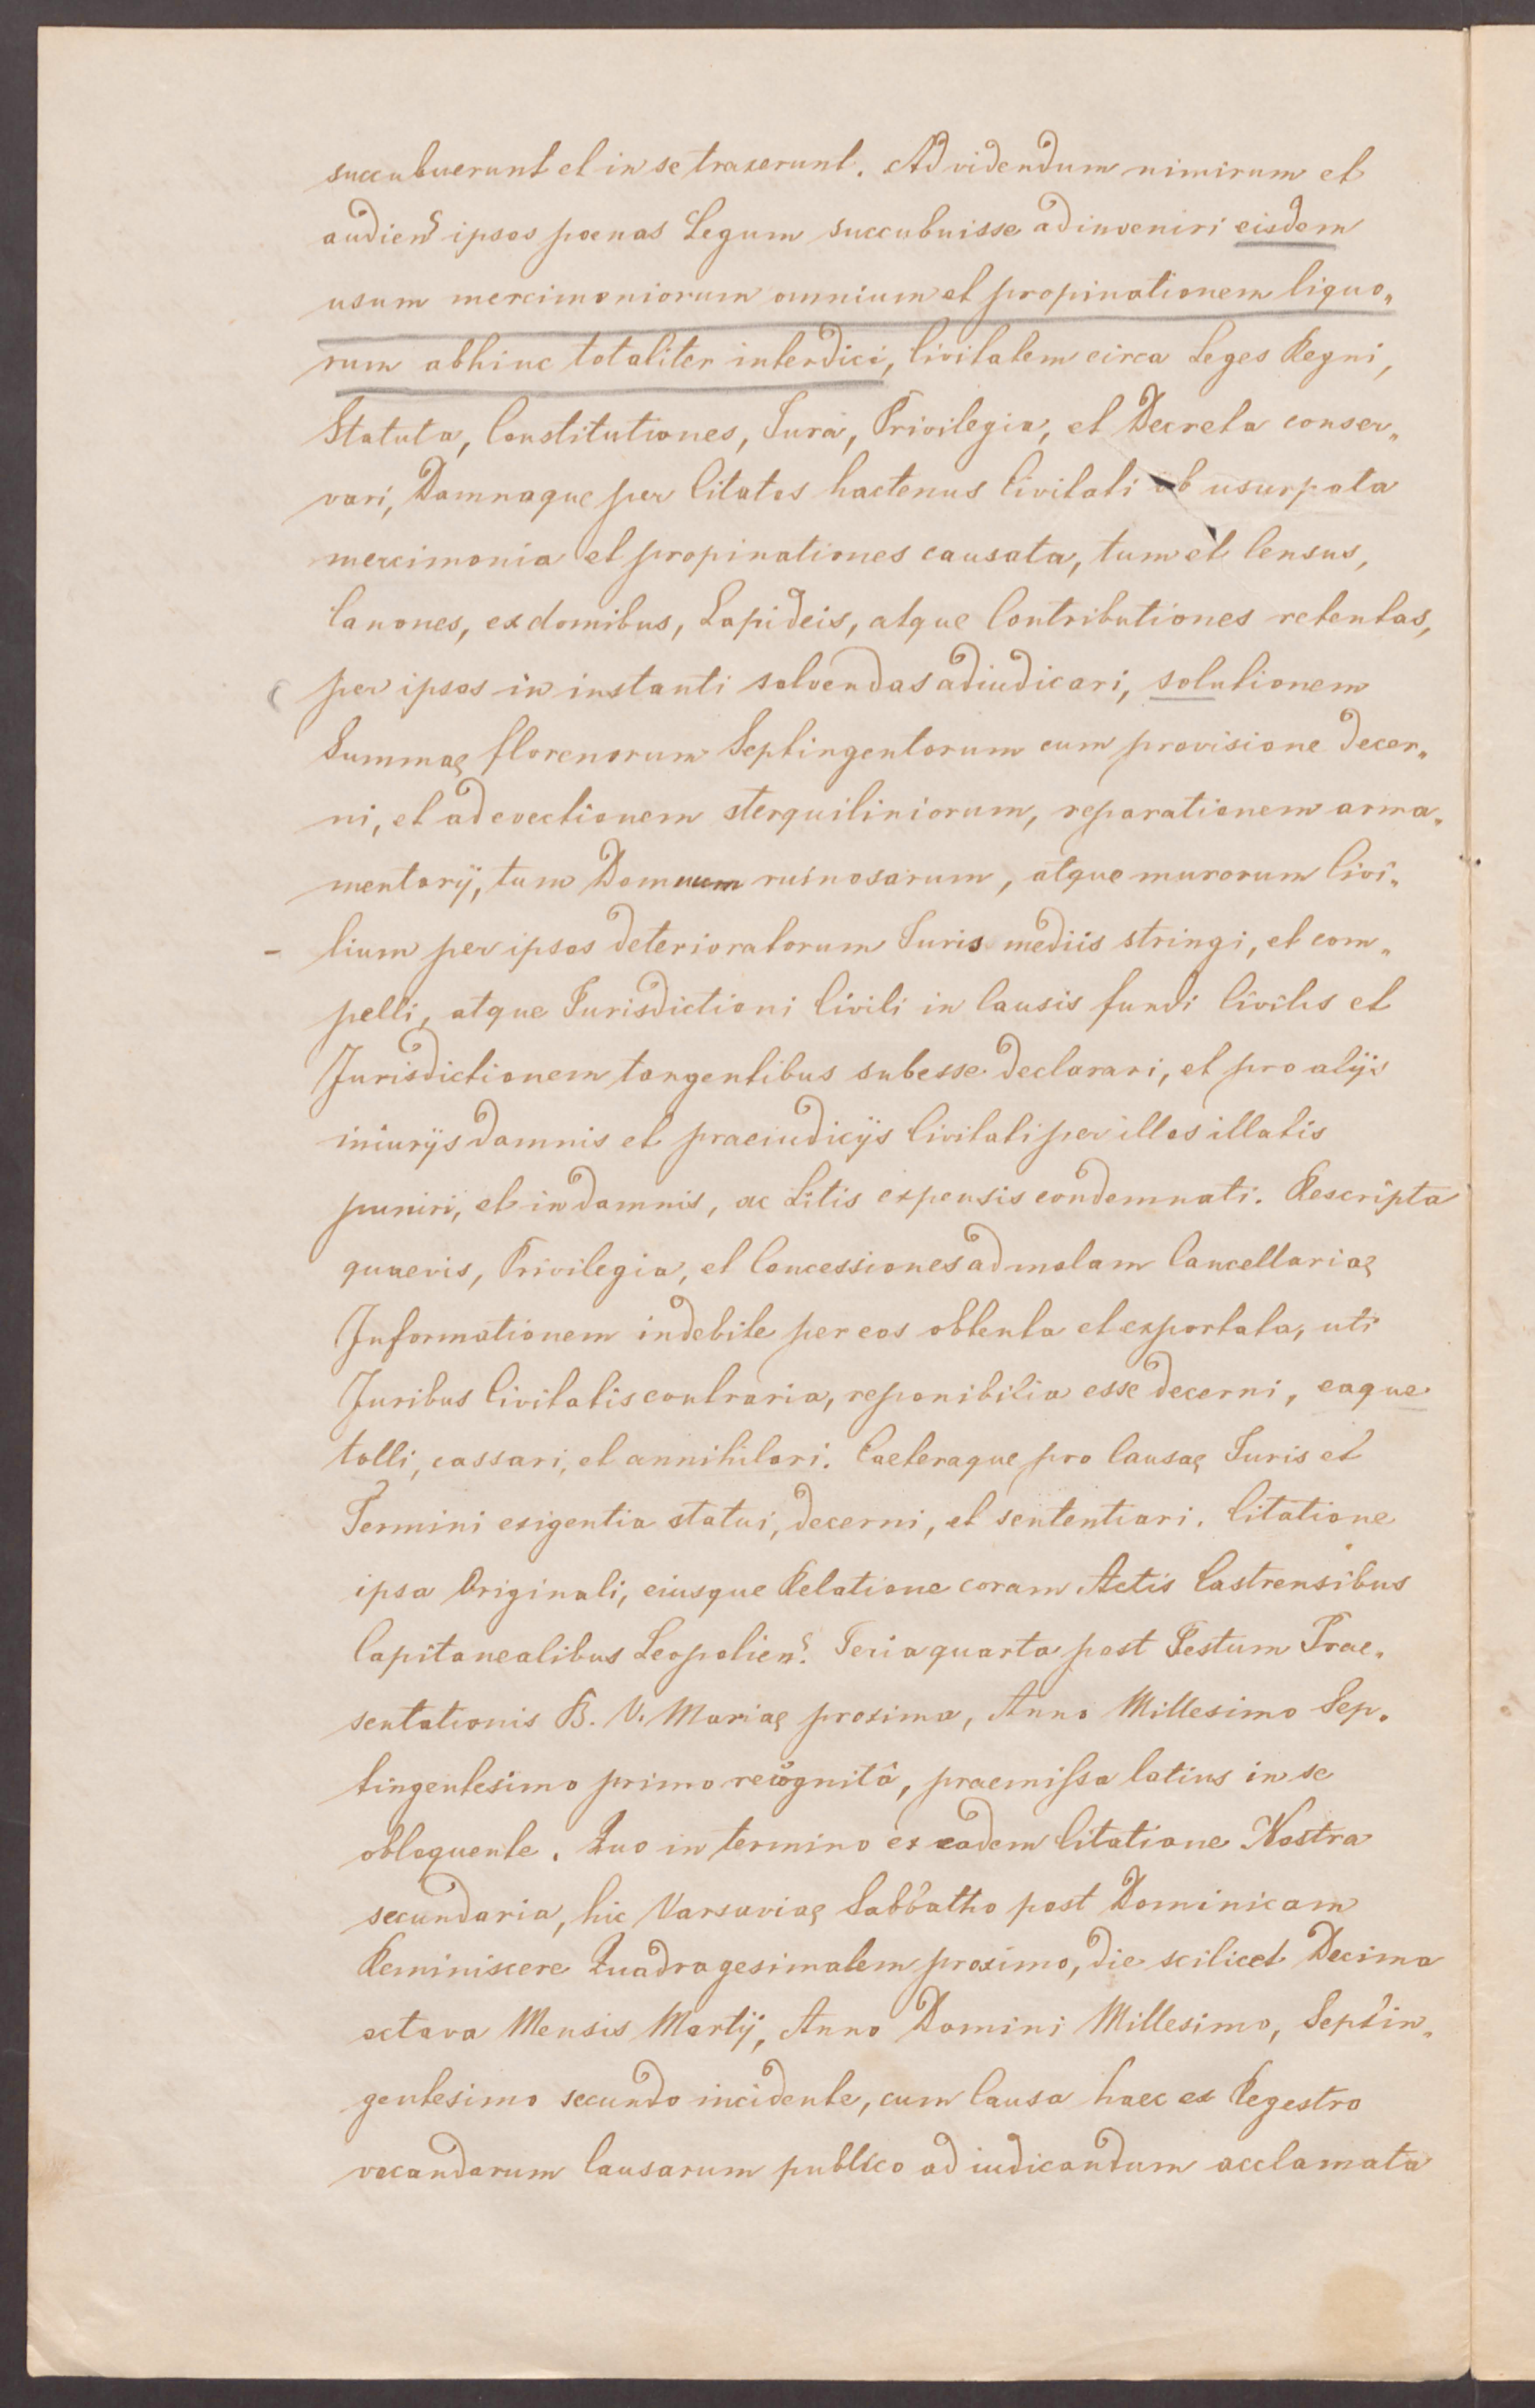 succubuerunt et in se traxerunt. Ad videndum nimirum et
audiend ipsos poenas Legum succubuisse adinveniri eisdem
usum mercimoniorum omnium et propinationem liquo„
rum abhinc totaliter interdici, Civitatem circa Leges Regni,
Statuta, Constitutiones, Jura, Privilegia, et Decreta conser„
vari, Damnaque per Citatos hactenus Civitati ob usurpata
mercimonia et propinationes causata, tum et Census,
Canones, ex domibus, Lapideis, atque Contributiones retentas,
per ipsos in instanti solvendas adiudicari, solutionem
Summae florenorum Septingentorum cum provisione decer„
ni, et ad evectionem sterquiliniorum, reparationem arma„
mentarij, tum Domuum ruinosarum, atque murorum Civi„
lium per ipsos deterioratorum Juris mediis stringi, et com„
pelli, atque Jurisdictioni Civili in Causis fundi Civilis et
Jurisdictionem tangentibus subesse declarari, et pro alijs
iniurijs damnis et praeiudicijs Civitati per illos illatis
puniri, et in damnis, ac Litis expensis condemnati. Rescripta
quaevis, Privilegia, et Concessiones ad malam Cancellariae
Informationem indebite per eos obtenta et exportata, uti
Juribus Civitatis contraria, reponibilia esse decerni, eaque
tolli, cassari, et annihilari. Caeteraque pro Causae Juris et
Termini exigentia statui, decerni, et sententiari. Citatione
ipsa Originali, eiusque Relatione coram Actis Castrensibus
Capitanealibus Leopolien. Feria quarta post Festum Prae„
sentationis B. V. Mariae proxima, Anno Millesimo Sep„
tingentesimo primo recognitâ, praemissa latius in se
obloquente. Quo in termino ex eadem Citatione Nostra
secundaria, hic Varsaviae Sabbatho post Dominicam
Reminiscere Quadragesimalem proximo, die scilicet Decima
octava Mensis Martij, Anno Domini Millesimo, Septin„
gentesimo secundo incidente, cum Causa haec ex Regestro
vocandarum Causarum publico ad iudicandum acclamata